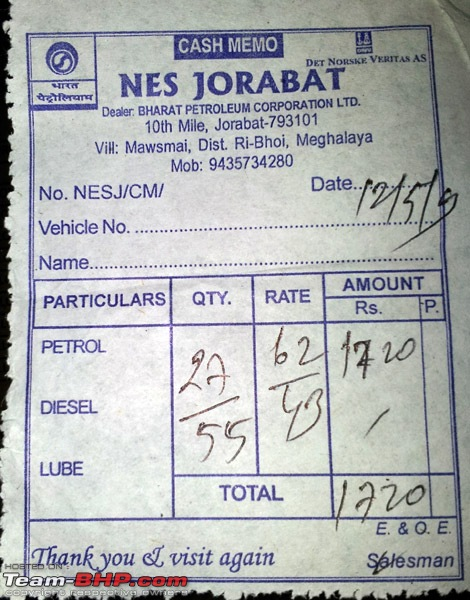 CASH MEMO
DET NORSKE VERITAS AS
भारत
पेट्रोलियम
NES JORABAT
Dealer: BHARAT PETROLEUM CORPORATION LTD.
10th Mile, Jorabat-793101
Vill: Mawsmai, Dist. Ri-Bhoi, Meghalaya
Mob: 9435734280
No. NESJ/CM/ Date..... 12/5/9
Vehicle No. ..........
Name..........
PARTICULARS QTY. RATE AMOUNT
Rs. P.
PETROL 27 62 1720
DIESEL 55 43
LUBE
TOTAL 1720
E. & O. E.
Thank you & visit again Salesman
HOSTED ON :
Team-BHP.com
copyright respective owners